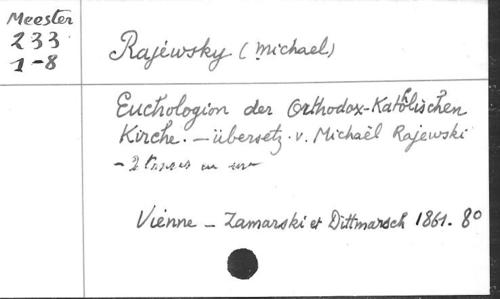 Meester
233
1-8
Rajéwsky (Michael)
Euchologion der Orthodox-Katholischen
Kirche. - übersetz. v. Michaël Rajewski
- 2 en un
Vienne - Zamarski et Dittmarsch 1861. 8°